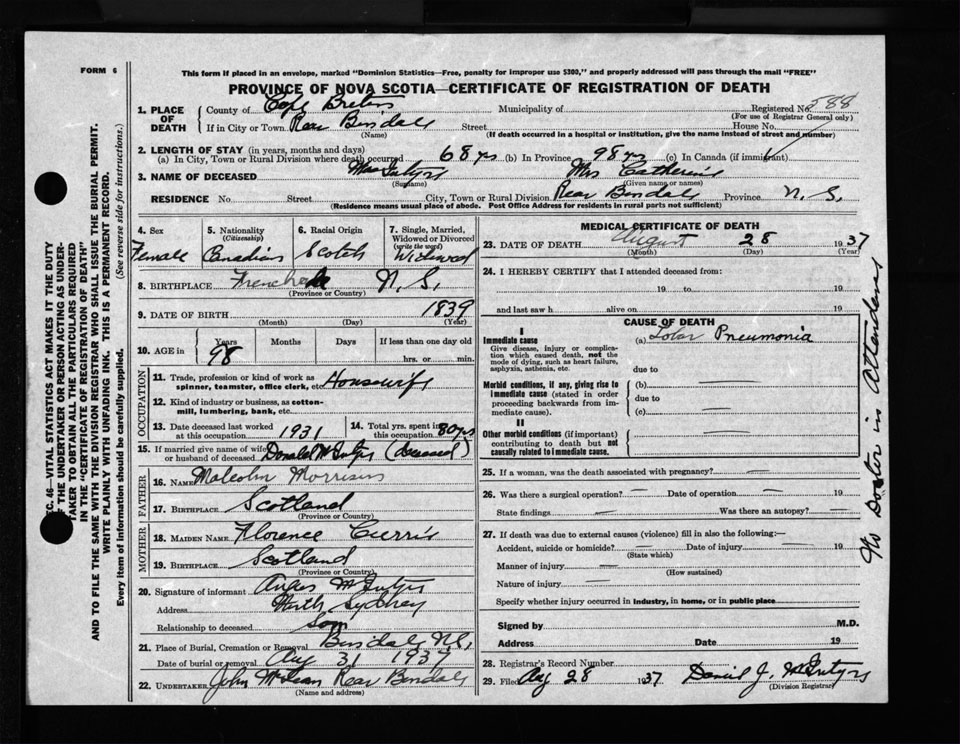 FORM 6
This form if placed in an envelope, marked "Dominion Statistics—Free, penalty for improper use $300," and properly addressed will pass through the mail "FREE"
PROVINCE OF NOVA SCOTIA—CERTIFICATE OF REGISTRATION OF DEATH
1. PLACE OF DEATH
County of Cape Breton Municipality of Registered No. 588
(For use of Registrar General only)
If in City or Town Rear Street House No.
(Name) (If death occurred in a hospital or institution, give the name instead of street and number)
2. LENGTH OF STAY (in years, months and days)
(a) In City, Town or Rural Division where death occurred 68 yrs (b) In Province 98 yrs (c) In Canada (if immigrant)
3. NAME OF DECEASED Mrs Catherine
(Surname) (Given name or names)
RESIDENCE No. Street City, Town or Rural Division Rear Province N. S.
(Residence means usual place of abode. Post Office Address for residents in rural parts not sufficient)
4. Sex Female
5. Nationality (Citizenship) Canadian
6. Racial Origin Scotch
7. Single, Married, Widowed or Divorced (write the word) Widowed
8. BIRTHPLACE N. S.
(Province or Country)
9. DATE OF BIRTH 1839
(Month) (Day) (Year)
10. AGE in Years Months Days If less than one day old
98 hrs. or min.
OCCUPATION
11. Trade, profession or kind of work as spinner, teamster, office clerk, etc. Housewife
12. Kind of industry or business, as cotton-mill, lumbering, bank, etc.
13. Date deceased last worked at this occupation 1931
14. Total yrs. spent in this occupation 80 yrs
15. If married give name of wife or husband of deceased Donald McIntyre (deceased)
FATHER
16. NAME Malcolm Morrison
17. BIRTHPLACE Scotland
(Province or Country)
MOTHER
18. MAIDEN NAME Florence Currie
19. BIRTHPLACE Scotland
(Province or Country)
20. Signature of informant Angus McIntyre
Address North Sydney
Relationship to deceased Son
21. Place of Burial, Cremation or Removal N.S.
Date of burial or removal Aug 31 1937
22. UNDERTAKER John McLean Rear
(Name and address)
MEDICAL CERTIFICATE OF DEATH
23. DATE OF DEATH August 28 1937
(Month) (Day) (Year)
24. I HEREBY CERTIFY that I attended deceased from:
19 to 19
and last saw h alive on 19
CAUSE OF DEATH
I
Immediate cause (a) Lobar Pneumonia
Give disease, injury or complication which caused death, not the mode of dying, such as heart failure, asphyxia, asthenia, etc.
due to
Morbid conditions, if any, giving rise to immediate cause (stated in order proceeding backwards from immediate cause).
(b)
due to
(c)
II
Other morbid conditions (if important) contributing to death but not causally related to immediate cause.
25. If a woman, was the death associated with pregnancy?
26. Was there a surgical operation? Date of operation 19
State findings Was there an autopsy?
27. If death was due to external causes (violence) fill in also the following:—
Accident, suicide or homicide? Date of injury 19
(State which)
Manner of injury
(How sustained)
Nature of injury
Specify whether injury occurred in industry, in home, or in public place
Signed by M.D.
Address Date 19
28. Registrar's Record Number
29. Filed Aug 28 1937 Daniel J. McIntyre
(Division Registrar)
No Doctor in Attendance
SEC. 46—VITAL STATISTICS ACT MAKES IT THE DUTY
OF THE UNDERTAKER OR PERSON ACTING AS UNDER-
TAKER TO OBTAIN ALL THE PARTICULARS REQUIRED
IN THE "CERTIFICATE OF REGISTRATION OF DEATH"
AND TO FILE THE SAME WITH THE DIVISION REGISTRAR WHO SHALL ISSUE THE BURIAL PERMIT.
WRITE PLAINLY WITH UNFADING INK. THIS IS A PERMANENT RECORD.
Every item of information should be carefully supplied. (See reverse side for instructions.)